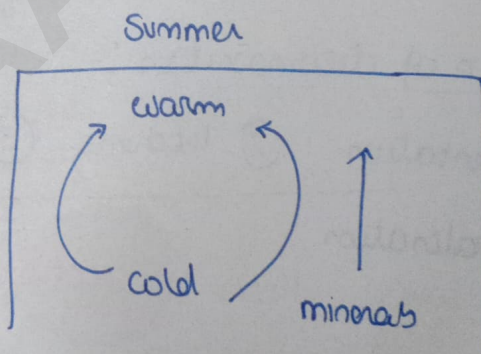 Summer
warm
cold
minerals